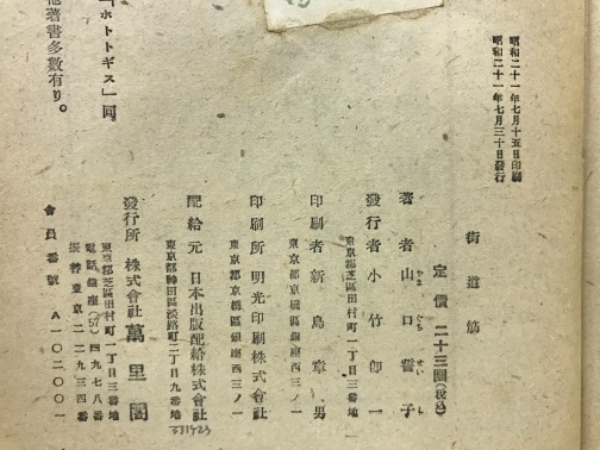 昭和二十一年七月十五日印刷
昭和二十一年七月三十日發行
街道筋
定價 二十三圓(税込)
著者 山口誓子
やま ぐち せい し
發行者 小竹卽一
東京都芝區田村町一丁目三番地
印刷者 新島章男
東京都京橋區銀座西三ノ一
印刷所 明光印刷株式會社
東京都京橋區銀座西三ノ一
配給元 日本出版配給株式會社
東京都神田區淡路町二丁目九番地
發行所 株式會社 萬里閣
東京都芝區田村町一丁目三番地
電話銀座(57)四九七八番
振替東京二二九三四番
會員番號 A一〇二〇〇一
「ホトトギス」同
著書多數有り。